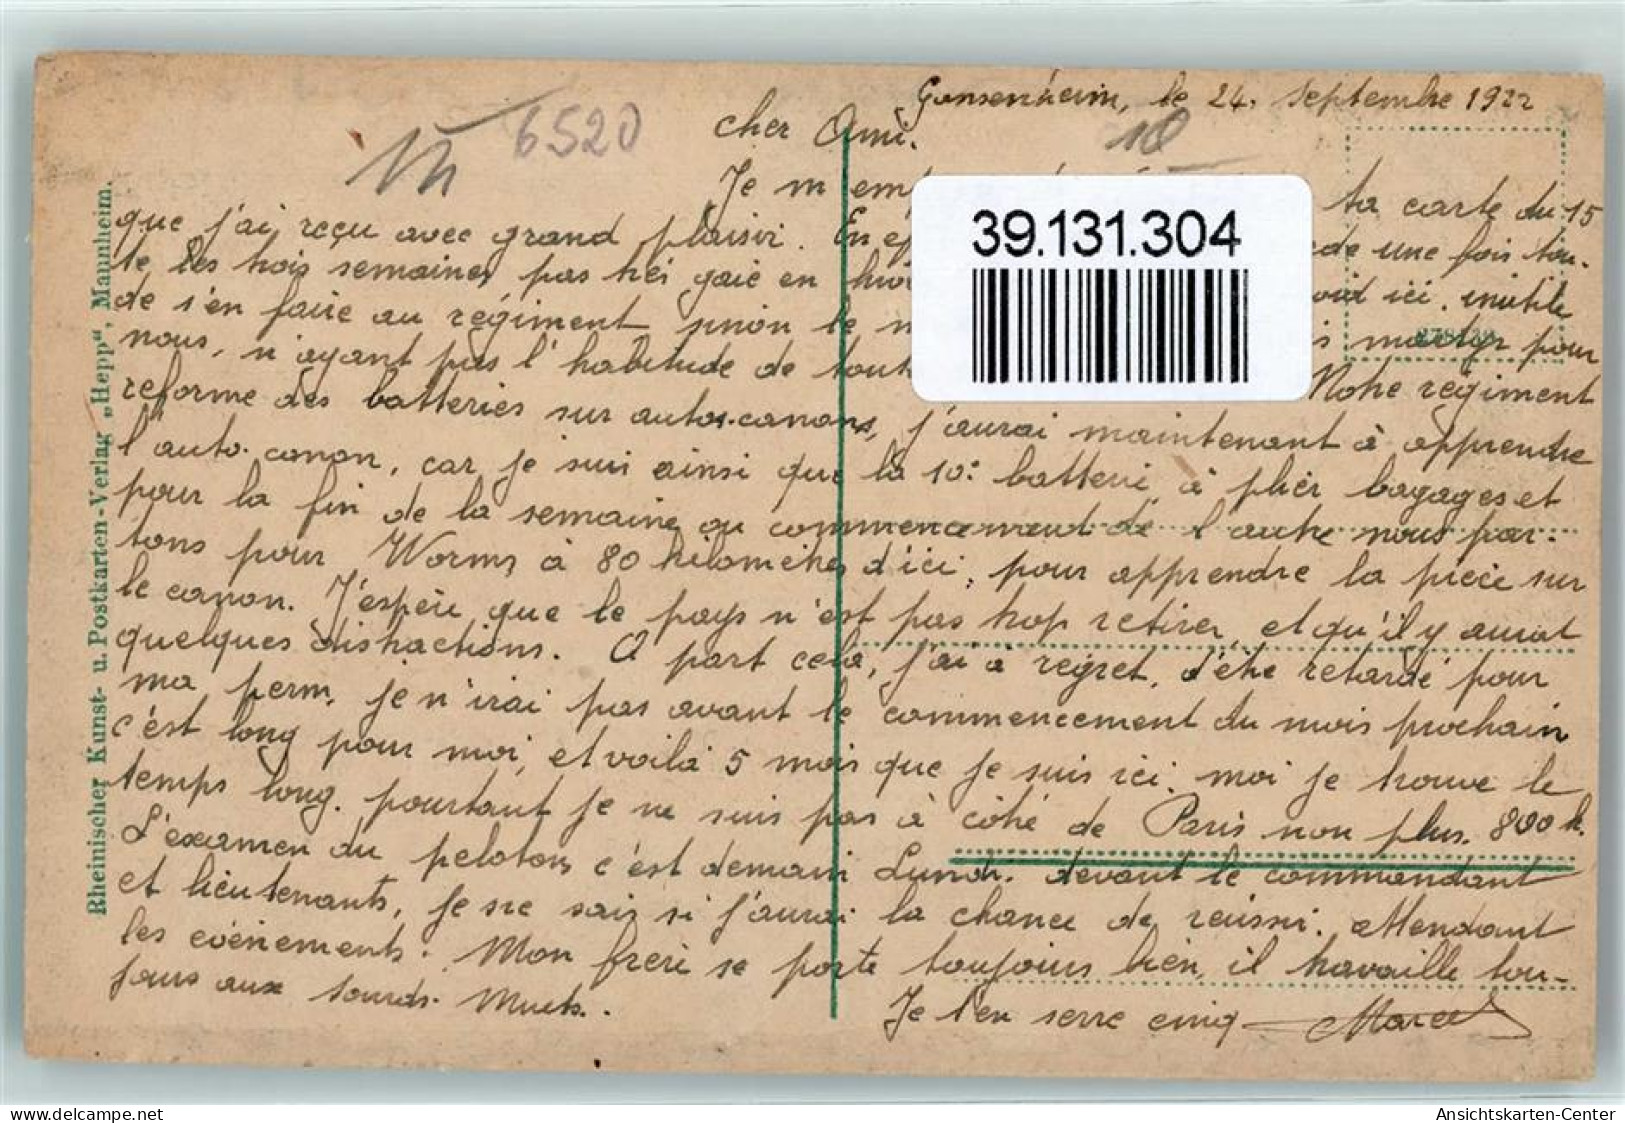 Gonsenheim, le 24. septembre 1922
cher Ami.
6520
10
Je m'emp ta carte du 15
que j'ai reçu avec grand plaisir. En ef de une fois tou-
te les trois semaines, pas trés gaie en hiv oid ici. inutile
de s'en faire au régiment sinon le m s martyr pour
nous, n'ayant pas l'habitude de tout Notre regiment
reforme des batteries sur autos-canons, j'aurai maintenant à apprendre
l'auto-canon, car je suis ainsi que la 10e batterie, à plier bagages et
pour la fin de la semaine ou commencement de l'autre nous par-
tons pour Worms à 80 kilomètres d'ici, pour apprendre la pièce sur
le canon. J'espère que le pays n'est pas trop retirer, et qu'il y aurat
quelques distractions. A part cela, j'ai à regret, d'être retardé pour
ma perm, je n'irai pas avant le commencement du mois prochain
c'est long pour moi, et voilà 5 mois que je suis ici. moi je trouve le
temps long. pourtant je ne suis pas à côté de Paris non plus. 800 k.
L'examen du peloton, c'est demain Lundi. devant le commandant
et lieutenants, je ne sais si j'aurai la chance de réussir. Attendant
les evènements. Mon frère se porte toujours bien, il travaille tou-
jours aux sourds-Muets.
Je t'en serre cinq Marcel
39.131.304
Rheinischer Kunst- u. Postkarten-Verlag „Hepp“, Mannheim.
delcampe.net
Ansichtskarten-Center